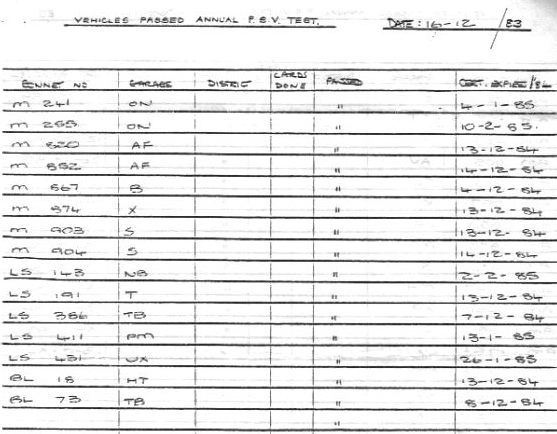 VEHICLES PASSED ANNUAL P.S.V. TEST. DATE: 16-12/83
BONNET NO GARAGE DISTRICT CARDS DONE PASSED CERT. EXPIRES/84
M 241 ON " 4-1-85
M 255 ON " 10-2-85.
M 820 AF " 13-12-84
M 852 AF " 14-12-84
M 867 B " 4-12-84
M 874 X " 13-12-84
M 903 S " 13-12-84
M 904 S " 14-12-84
LS 143 NB " 2-2-85
LS 191 T " 13-12-84
LS 386 TB " 7-12-84
LS 411 PM " 13-1-85
LS 431 UX " 26-1-85
BL 18 HT " 13-12-84
BL 73 TB " 8-12-84
"